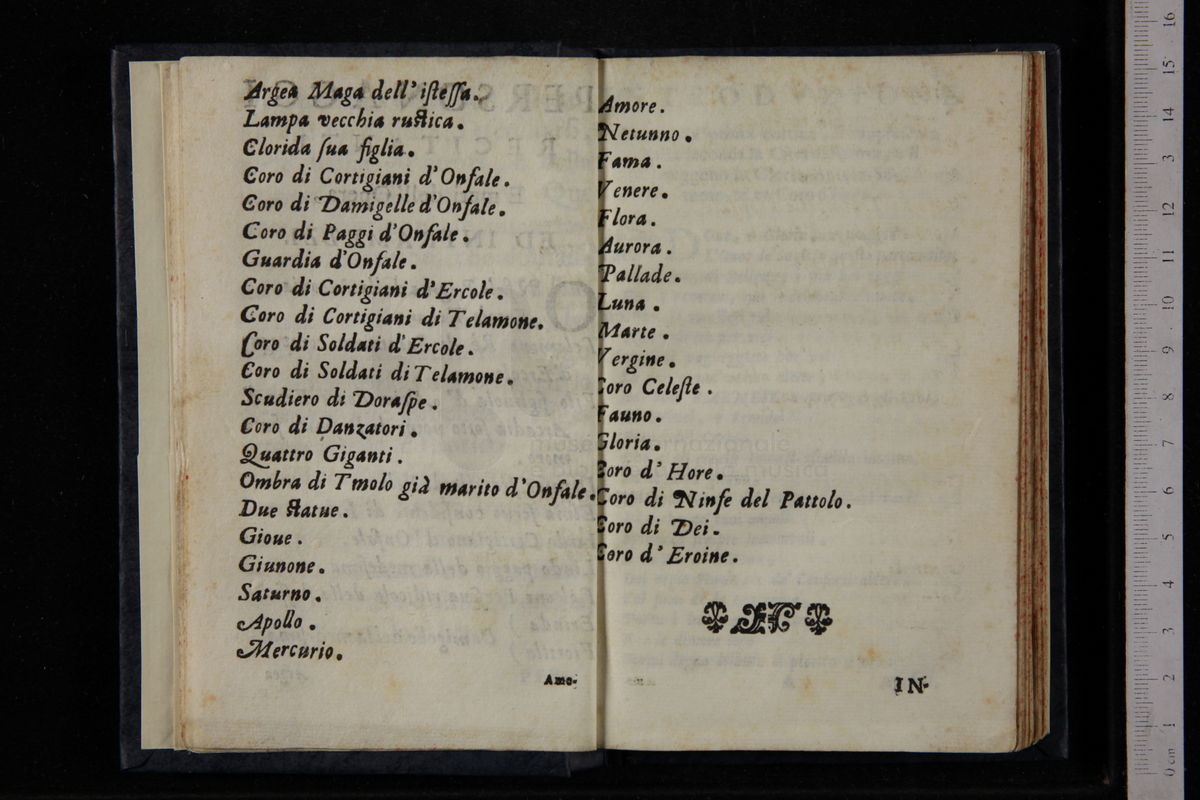 Argea Maga dell' istessa.
Lampa vecchia rustica.
Clorida sua figlia.
Coro di Cortigiani d'Onfale.
Coro di Damigelle d'Onfale.
Coro di Paggi d'Onfale.
Guardia d'Onfale.
Coro di Cortigiani d'Ercole.
Coro di Cortigiani di Telamone.
Coro di Soldati d'Ercole.
Coro di Soldati di Telamone.
Scudiero di Doraspe.
Coro di Danzatori.
Quattro Giganti.
Ombra di Tmolo già marito d'Onfale.
Due statue.
Gioue.
Giunone.
Saturno.
Apollo.
Mercurio.
Amo-
Amore.
Netunno.
Fama.
Venere.
Flora.
Aurora.
Pallade.
Luna.
Marte.
Vergine.
Coro Celeste.
Fauno.
Gloria.
Coro d' Hore.
Coro di Ninfe del Pattolo.
Coro di Dei.
Coro d' Eroine.
IN-
0 cm 1 2 3 4 5 6 7 8 9 10 11 12 13 14 15 16